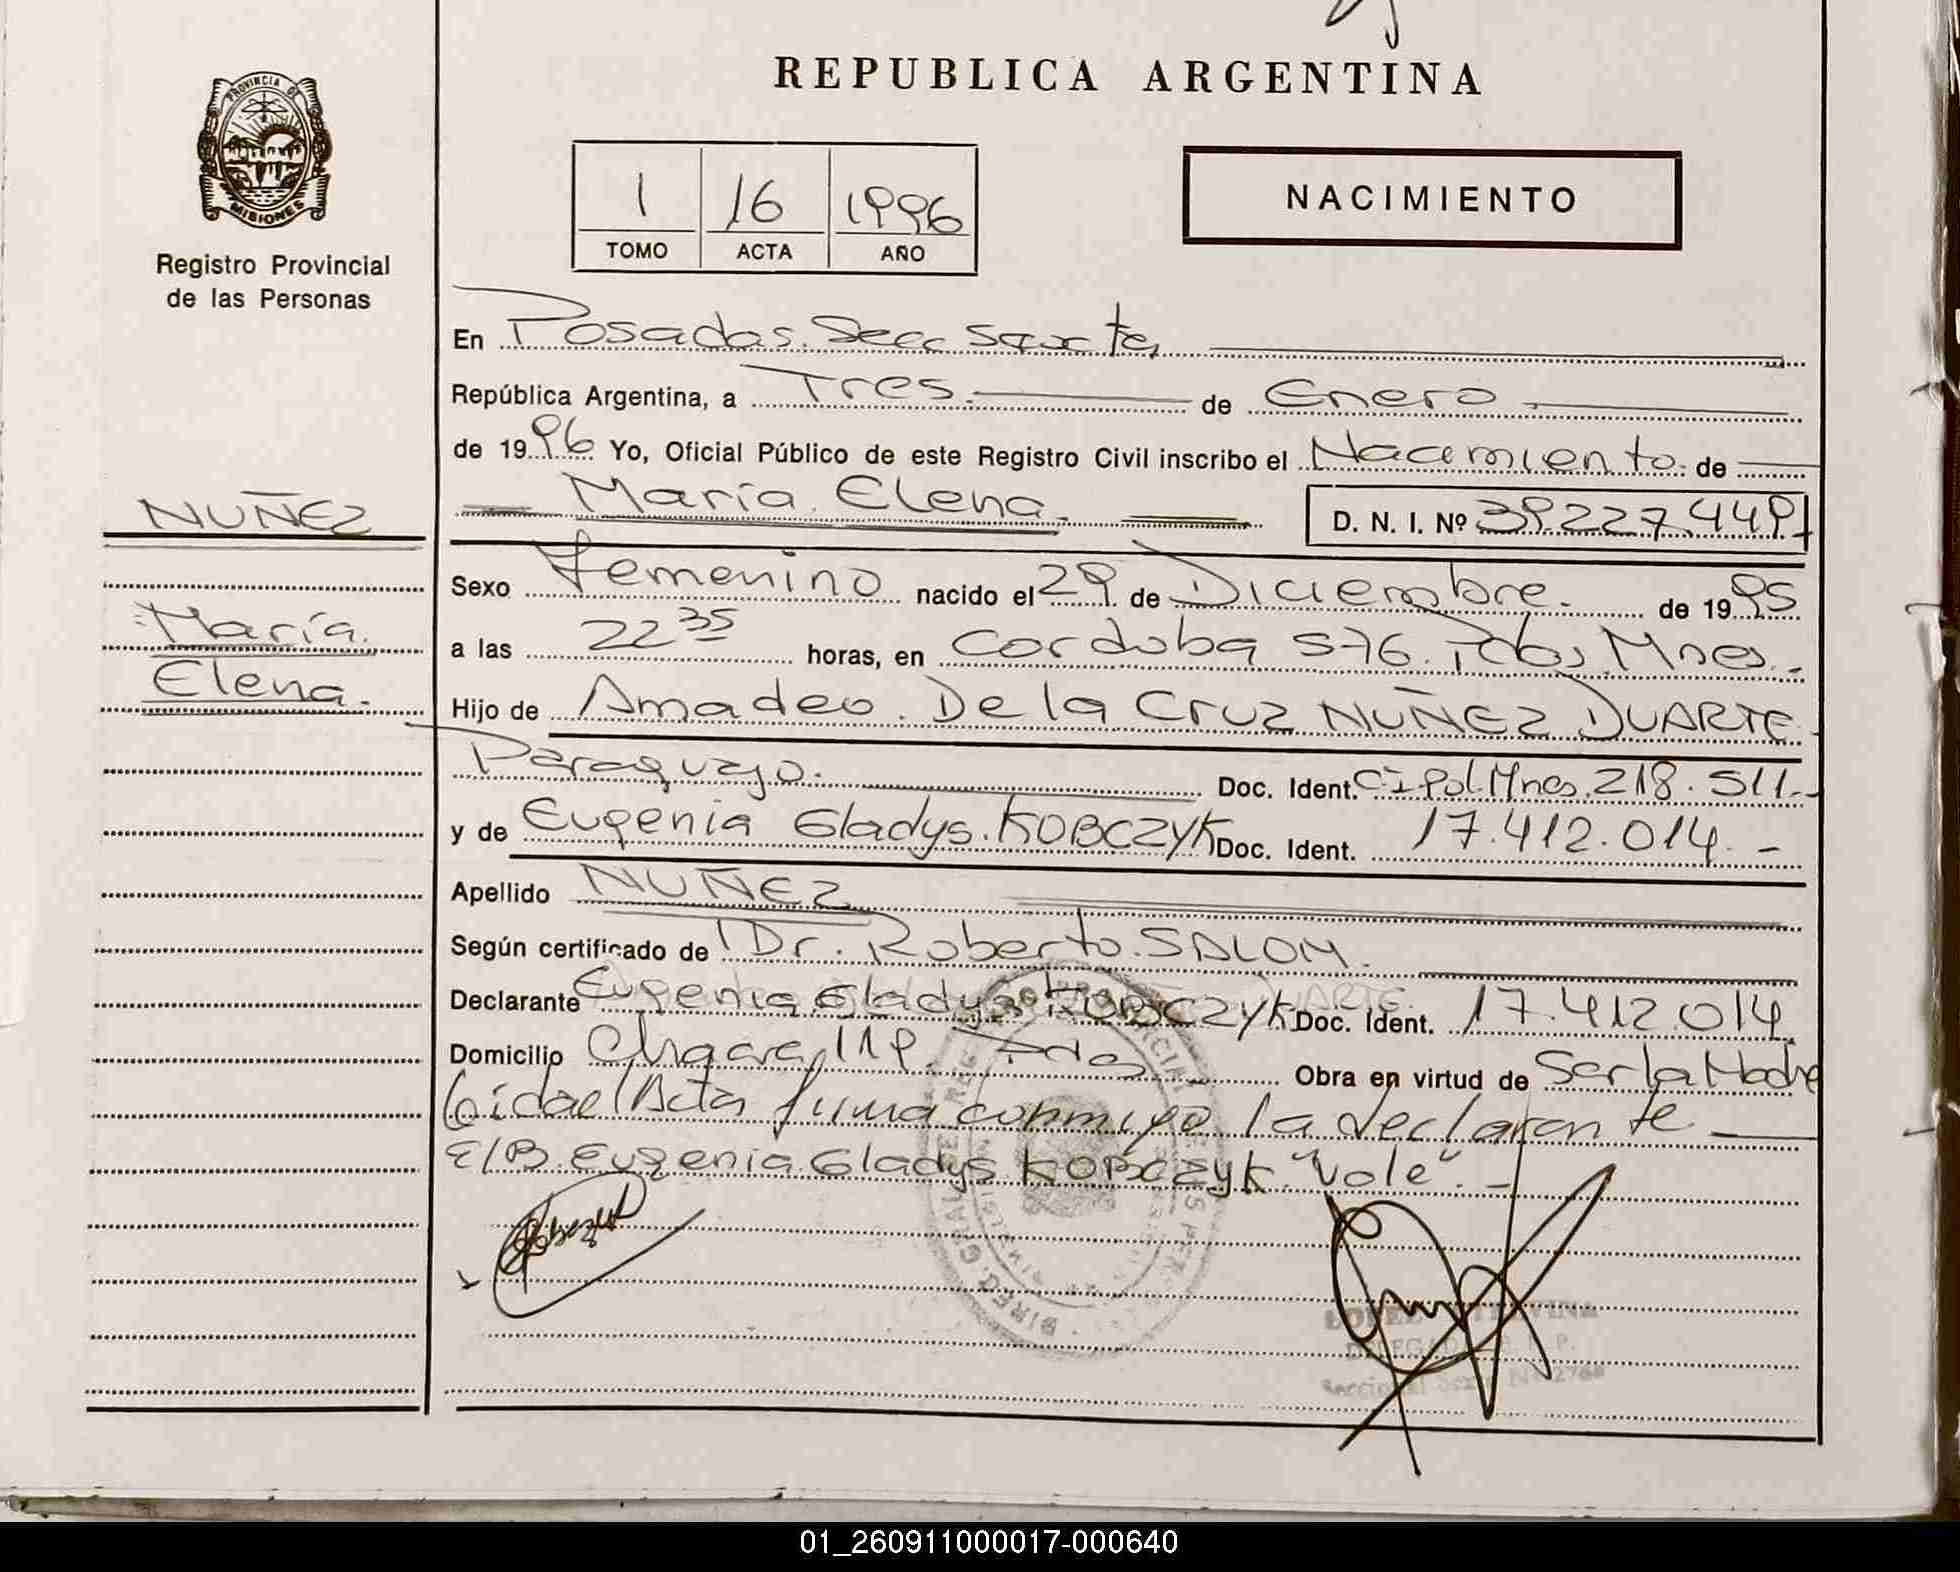 REPUBLICA ARGENTINA
PROVINCIA DE
MISIONES
Registro Provincial
de las Personas
1 16 1996
TOMO ACTA AÑO
NACIMIENTO
En Posadas. Secc Sexta,
República Argentina, a Tres. de Enero
de 1996 Yo, Oficial Público de este Registro Civil inscribo el Nacimiento. de
María Elena. D. N. I. Nº 39.227.449
NUÑEZ
María
Elena.
Sexo Femenino nacido el 29 de Diciembre. de 1995
a las 22 35 horas, en Cordoba 576. Pdas, Mnes.
Hijo de Amadeo. De la Cruz NUÑEZ DUARTE.
Paraguayo. Doc. Ident. CI. Pol. Mnes. 218.511.-
y de Eugenia Gladys. KOBCZYK Doc. Ident. 17.412.014.-
Apellido NUÑEZ
Según certificado de Dr. Roberto. SALOM.
Declarante Eugenia Gladys KOBCZYK Doc. Ident. 17.412.014
Domicilio Chacra 119. Pdas Obra en virtud de Ser la Madre
Leida el Acta firma conmigo la declarante
E/B. Eugenia. Gladys KOBCZYK. "Vale". -
01_260911000017-000640